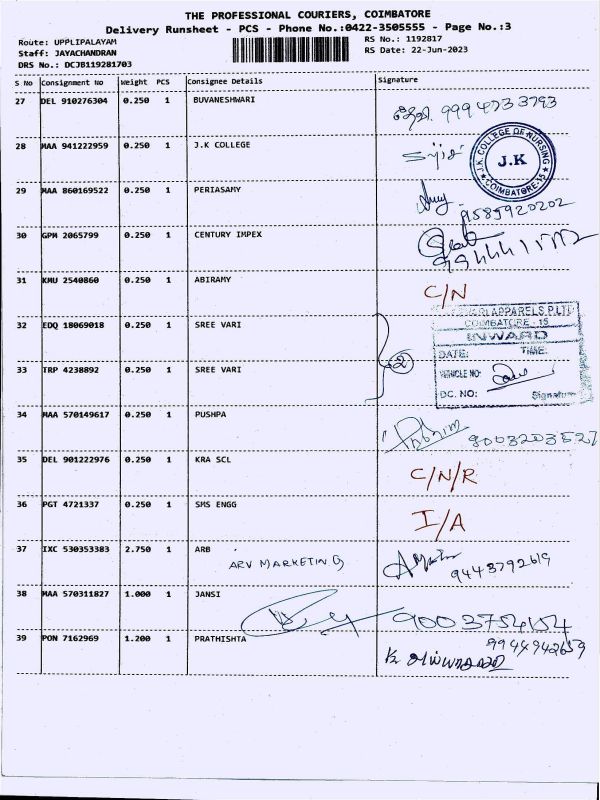 THE PROFESSIONAL COURIERS, COIMBATORE
Delivery Runsheet - PCS - Phone No.:0422-3505555 - Page No.:3
Route: UPPLIPALAYAM RS No.: 1192817
Staff: JAYACHANDRAN RS Date: 22-Jun-2023
DRS No.: DCJB119281703
S No Consignment No Weight PCS Consignee Details Signature
27 DEL 910276304 0.250 1 BUVANESHWARI 9994733793
28 MAA 941222959 0.250 1 J.K COLLEGE
J.K COLLEGE OF NURSING
J.K
COIMBATORE-15
29 MAA 860169522 0.250 1 PERIASAMY
9585920202
30 GPM 2065799 0.250 1 CENTURY IMPEX
31 KMU 2540860 0.250 1 ABIRAMY C/N
APPARELS.P.LTD
COIMBATORE - 15
INWARD
DATE: TIME:
VEHICLE NO:
DC. NO: Signature
32 EDQ 18069018 0.250 1 SREE VARI
2
33 TRP 4238892 0.250 1 SREE VARI
34 MAA 570149617 0.250 1 PUSHPA 9003203527
35 DEL 901222976 0.250 1 KRA SCL C/N/R
36 PGT 4721337 0.250 1 SMS ENGG I/A
37 IXC 530353383 2.750 1 ARB
ARV MARKETING 9443792619
38 MAA 570311827 1.000 1 JANSI
9003754154
39 PON 7162969 1.200 1 PRATHISHTA 9944942659